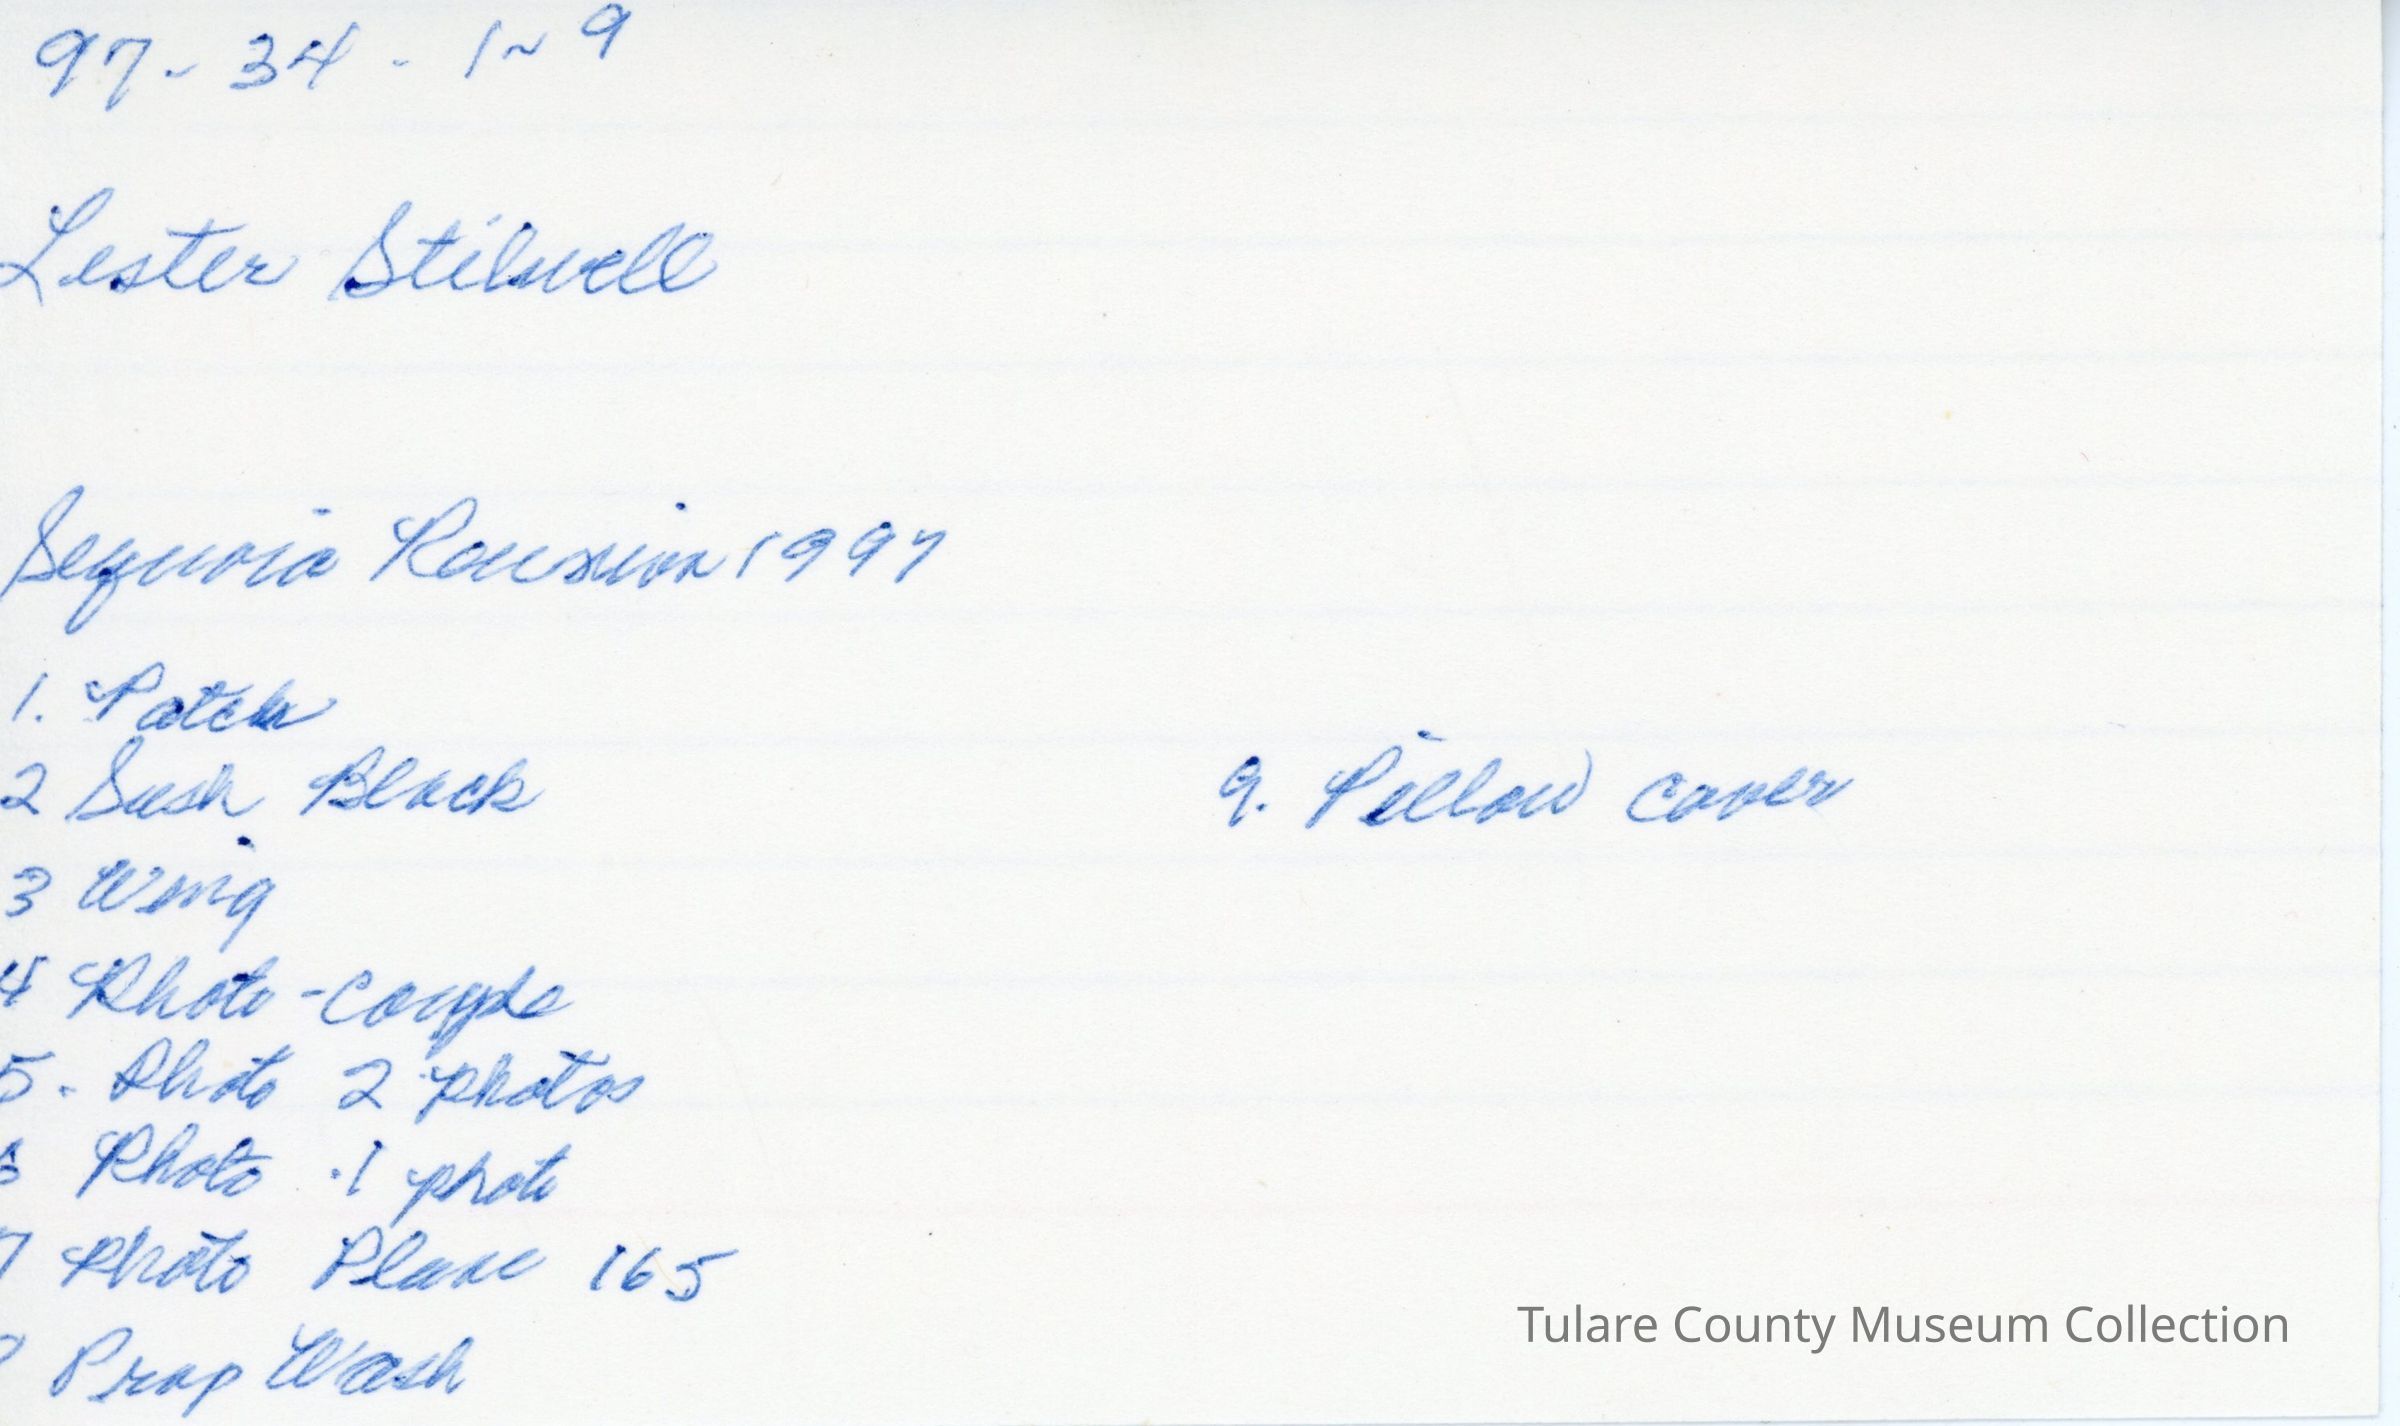 97-34-1~9
Lester Stilwell
Sequoia Reunion 1997
1. Patch
2 Sash Black
3 Wing
4 Photo-Couple
5. Photo 2 photos
6 Photo .1 photo
7 Photo Plane 165
8 Prop Wash
9. Pillow cover
Tulare County Museum Collection